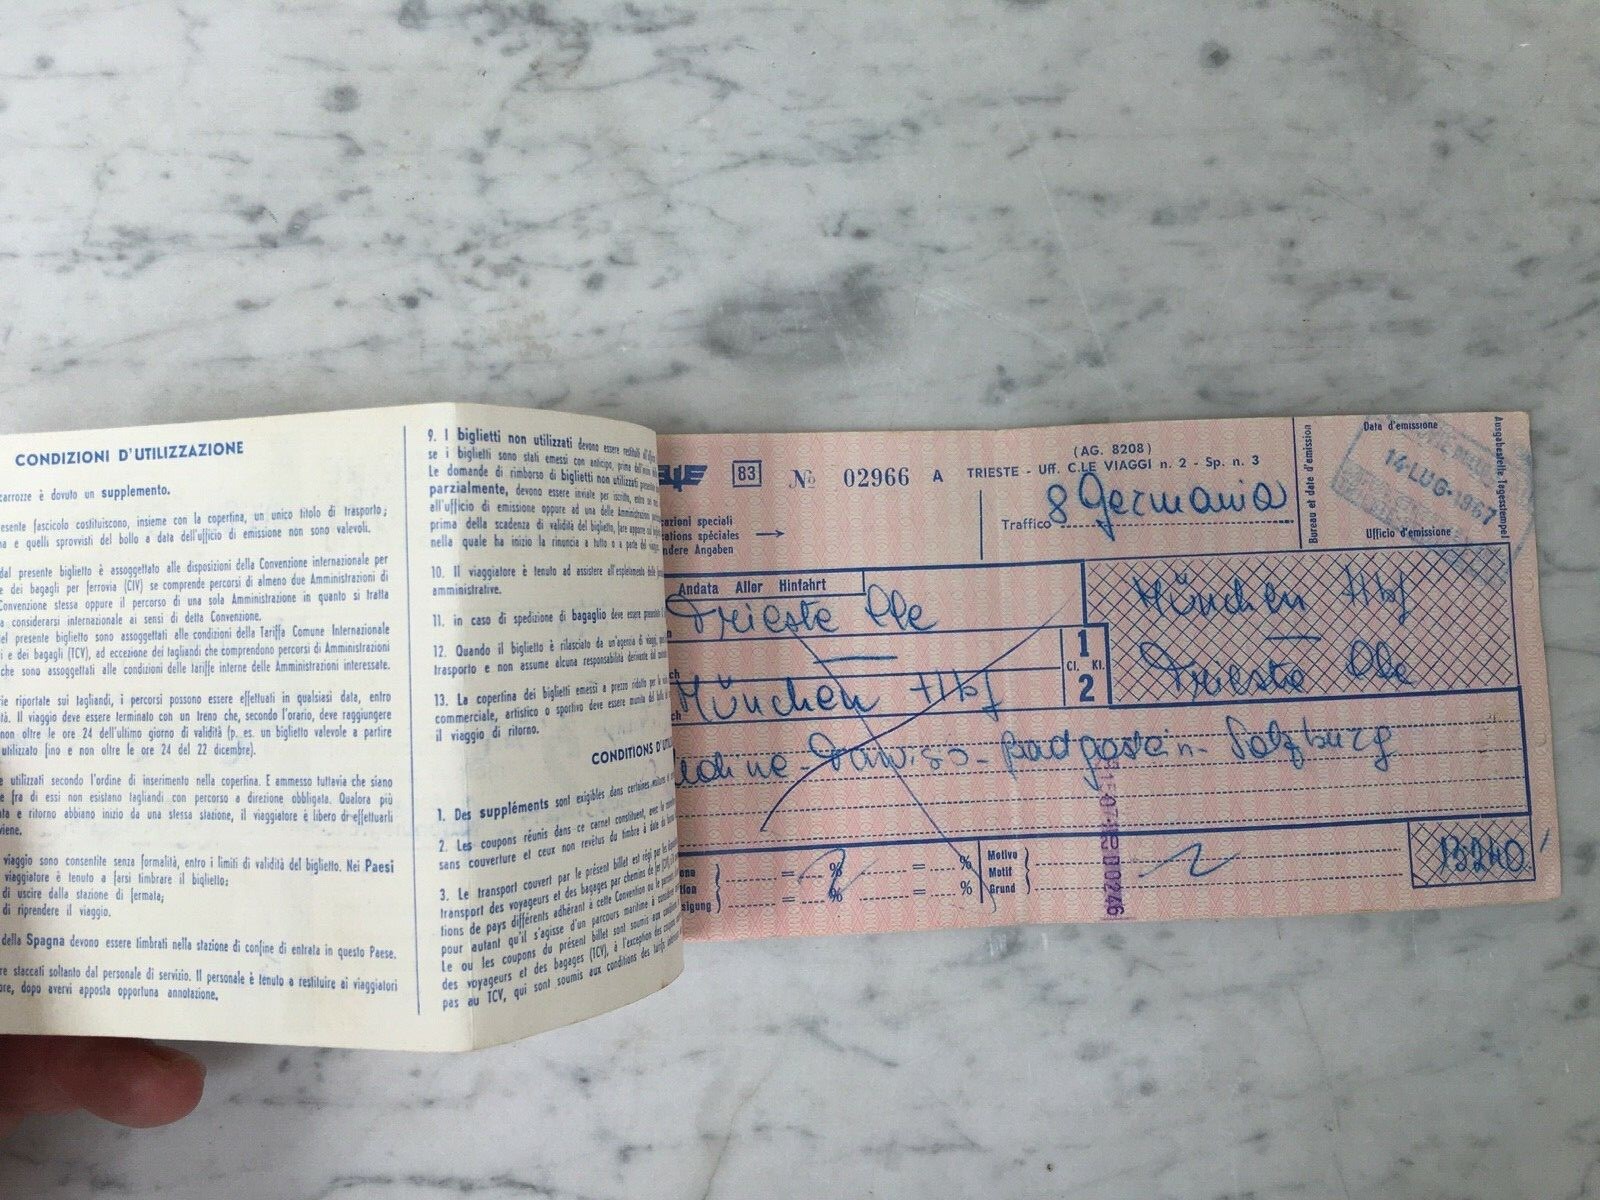 CONDIZIONI D'UTILIZZAZIONE
carrozze è dovuto un supplemento.
esente fascicolo costituiscono, insieme con la copertina, un unico titolo di trasporto;
na e quelli sprovvisti del bollo a data dell'ufficio di emissione non sono valevoli.
dal presente biglietto è assoggettato alle disposizioni della Convenzione internazionale per
e dei bagagli per ferrovia (CIV) se comprende percorsi di almeno due Amministrazioni di
Convenzione stessa oppure il percorso di una sola Amministrazione in quanto si tratta
a considerarsi internazionale ai sensi di detta Convenzione.
el presente biglietto sono assoggettati alle condizioni della Tariffa Comune Internazionale
i e dei bagagli (TCV), ad eccezione dei tagliandi che comprendono percorsi di Amministrazioni
che sono assoggettati alle condizioni delle tariffe interne delle Amministrazioni interessate.
rie riportate sui tagliandi, i percorsi possono essere effettuati in qualsiasi data, entro
tà. Il viaggio deve essere terminato con un treno che, secondo l'orario, deve raggiungere
non oltre le ore 24 dell'ultimo giorno di validità (p. es. un biglietto valevole a partire
utilizzato fino e non oltre le ore 24 del 22 dicembre).
e utilizzati secondo l'ordine di inserimento nella copertina. E ammesso tuttavia che siano
e fra di essi non esistano tagliandi con percorso a direzione obbligata. Qualora più
ta e ritorno abbiano inizio da una stessa stazione, il viaggiatore è libero di effettuarli
viene.
viaggio sono consentite senza formalità, entro i limiti di validità del biglietto. Nei Paesi
viaggiatore è tenuto a farsi timbrare il biglietto;
di uscire dalla stazione di fermata;
di riprendere il viaggio.
della Spagna devono essere timbrati nella stazione di confine di entrata in questo Paese.
re staccati soltanto dal personale di servizio. Il personale è tenuto a restituire ai viaggiatori
ore, dopo avervi apposta opportuna annotazione.
9. I biglietti non utilizzati devono essere restituiti
se i biglietti sono stati emessi con anticipo, prima
Le domande di rimborso di biglietti non utilizzati
parzialmente, devono essere inviate per iscritto,
all'ufficio di emissione oppure ad una delle Amministrazioni
prima della scadenza di validità del biglietto, fare apporre
nella quale ha inizio la rinuncia a tutto o a parte del
10. Il viaggiatore è tenuto ad assistere all'espletamento delle
amministrative.
11. in caso di spedizione di bagaglio deve essere presentato
12. Quando il biglietto è rilasciato da un'agenzia di viaggi,
trasporto e non assume alcuna responsabilità derivante dal
13. La copertina dei biglietti emessi a prezzo ridotto per
commerciale, artistico o sportivo deve essere munita del
il viaggio di ritorno.
CONDITIONS D'UTI
1. Des suppléments sont exigibles dans certaines voitures
2. Les coupons réunis dans ce carnet constituent, avec
sans couverture et ceux non revêtus du timbre à date du
3. Le transport couvert par le présent billet est régi par les
transport des voyageurs et des bagages par chemins de fer (CIV),
tions de pays différents adhérant à cette Convention ou le
pour autant qu'il s'agisse d'un parcours maritime à
Le ou les coupons du présent billet sont soumis aux
des voyageurs et des bagages (TCV), à l'exception des coupons
pas au TCV, qui sont soumis aux conditions des tarifs
83 № 02966 A
(AG. 8208)
TRIESTE - Uff. C.LE VIAGGI n. 2 - Sp. n. 3
Traffico 8 Germania
cazioni speciali
cations spéciales
ndere Angaben
Bureau et date d'émission
Data d'emissione
14-LUG-1967
Ufficio d'emissione
Ausgabestelle Tagesstempel
Andata Aller Hinfahrt
Trieste Cle
—
München Hbf
1
Cl. Kl.
2
München Hbf
—
Trieste Cle
Udine - Tarvisio - Badgastein - Salzburg
one
tion
sigung
= %
= %
= %
= %
Motivo
Motif
Grund
13240